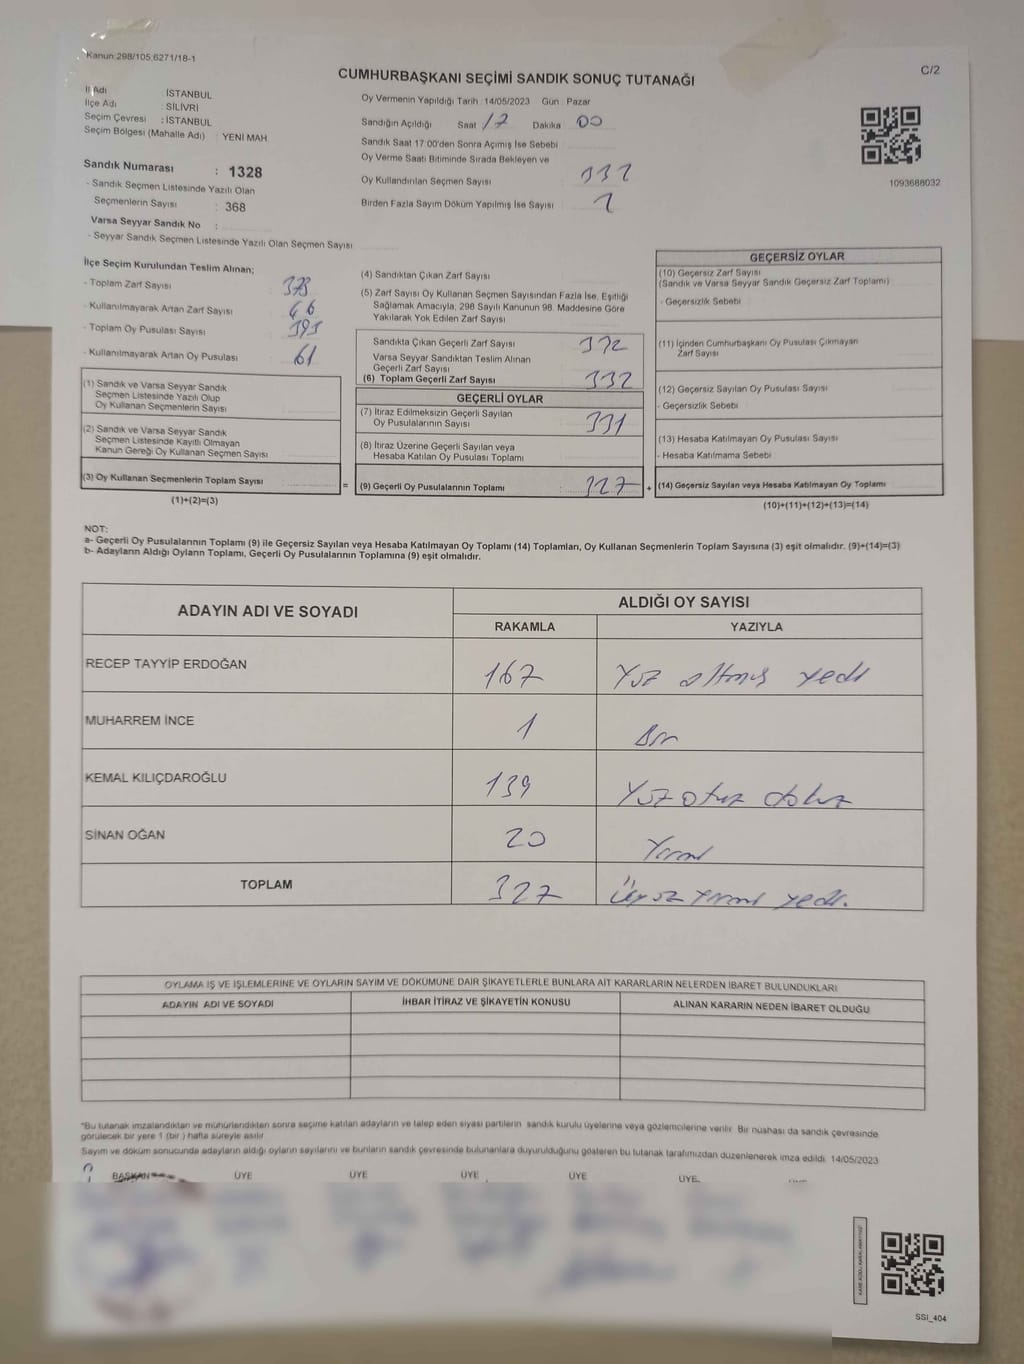 Kanun:298/105,6271/18-1
C/2
CUMHURBAŞKANI SEÇİMİ SANDIK SONUÇ TUTANAĞI
İl Adı : İSTANBUL
İlçe Adı : SİLİVRİ
Seçim Çevresi : İSTANBUL
Seçim Bölgesi (Mahalle Adı) : YENİ MAH
Sandık Numarası : 1328
- Sandık Seçmen Listesinde Yazılı Olan
Seçmenlerin Sayısı : 368
Varsa Seyyar Sandık No :
- Seyyar Sandık Seçmen Listesinde Yazılı Olan Seçmen Sayısı
Oy Vermenin Yapıldığı Tarih : 14/05/2023 Gün : Pazar
Sandığın Açıldığı Saat 17 Dakika 00
Sandık Saat 17:00'den Sonra Açımış İse Sebebi
Oy Verme Saati Bitiminde Sırada Bekleyen ve
Oy Kullandırılan Seçmen Sayısı 332
Birden Fazla Sayım Döküm Yapılmış İse Sayısı
1093688032
İlçe Seçim Kurulundan Teslim Alınan;
- Toplam Zarf Sayısı
- Kullanılmayarak Artan Zarf Sayısı
- Toplam Oy Pusulası Sayısı
- Kullanılmayarak Artan Oy Pusulası 61
(1) Sandık ve Varsa Seyyar Sandık
Seçmen Listesinde Yazılı Olup
Oy Kullanan Seçmenlerin Sayısı
(2) Sandık ve Varsa Seyyar Sandık
Seçmen Listesinde Kayıtlı Olmayan
Kanun Gereği Oy Kullanan Seçmen Sayısı
(3) Oy Kullanan Seçmenlerin Toplam Sayısı
=
(1)+(2)=(3)
(4) Sandıktan Çıkan Zarf Sayısı
(5) Zarf Sayısı Oy Kullanan Seçmen Sayısından Fazla İse, Eşitliği
Sağlamak Amacıyla, 298 Sayılı Kanunun 98. Maddesine Göre
Yakılarak Yok Edilen Zarf Sayısı
Sandıkta Çıkan Geçerli Zarf Sayısı 332
Varsa Seyyar Sandıktan Teslim Alınan
Geçerli Zarf Sayısı
(6) Toplam Geçerli Zarf Sayısı 332
GEÇERLİ OYLAR
(7) İtiraz Edilmeksizin Geçerli Sayılan
Oy Pusulalarının Sayısı 331
(8) İtiraz Üzerine Geçerli Sayılan veya
Hesaba Katılan Oy Pusulası Toplamı
(9) Geçerli Oy Pusulalarının Toplamı : 327 +
GEÇERSİZ OYLAR
(10) Geçersiz Zarf Sayısı
(Sandık ve Varsa Seyyar Sandık Geçersiz Zarf Toplamı)
- Geçersizlik Sebebi
(11) İçinden Cumhurbaşkanı Oy Pusulası Çıkmayan
Zarf Sayısı
(12) Geçersiz Sayılan Oy Pusulası Sayısı
- Geçersizlik Sebebi
(13) Hesaba Katılmayan Oy Pusulası Sayısı
- Hesaba Katılmama Sebebi
(14) Geçersiz Sayılan veya Hesaba Katılmayan Oy Toplamı
(10)+(11)+(12)+(13)=(14)
NOT:
a- Geçerli Oy Pusulalarının Toplamı (9) ile Geçersiz Sayılan veya Hesaba Katılmayan Oy Toplamı (14) Toplamları, Oy Kullanan Seçmenlerin Toplam Sayısına (3) eşit olmalıdır. (9)+(14)=(3)
b- Adayların Aldığı Oyların Toplamı, Geçerli Oy Pusulalarının Toplamına (9) eşit olmalıdır.
ADAYIN ADI VE SOYADI
ALDIĞI OY SAYISI
RAKAMLA YAZIYLA
RECEP TAYYİP ERDOĞAN 167 Yüz altmış yedi
MUHARREM İNCE 1 Bir
KEMAL KILIÇDAROĞLU 139 Yüz otuz dokuz
SİNAN OĞAN 20 Yirmi
TOPLAM 327 Üçyüz yirmi yedi.
OYLAMA İŞ VE İŞLEMLERİNE VE OYLARIN SAYIM VE DÖKÜMÜNE DAİR ŞİKAYETLERLE BUNLARA AİT KARARLARIN NELERDEN İBARET BULUNDUKLARI
ADAYIN ADI VE SOYADI İHBAR İTİRAZ VE ŞİKAYETİN KONUSU ALINAN KARARIN NEDEN İBARET OLDUĞU
*Bu tutanak imzalandıktan ve mühürlendikten sonra seçime katılan adayların ve talep eden siyasi partilerin sandık kurulu üyelerine veya gözlemcilerine verilir. Bir nüshası da sandık çevresinde
görülecek bir yere 1 (bir ) hafta süreyle asılır.
Sayım ve döküm sonucunda adayların aldığı oyların sayılarını ve bunların sandık çevresinde bulunanlara duyurulduğunu gösteren bu tutanak tarafımızdan düzenlenerek imza edildi. 14/05/2023
BAŞKAN ÜYE ÜYE ÜYE ÜYE ÜYE
SSI_404